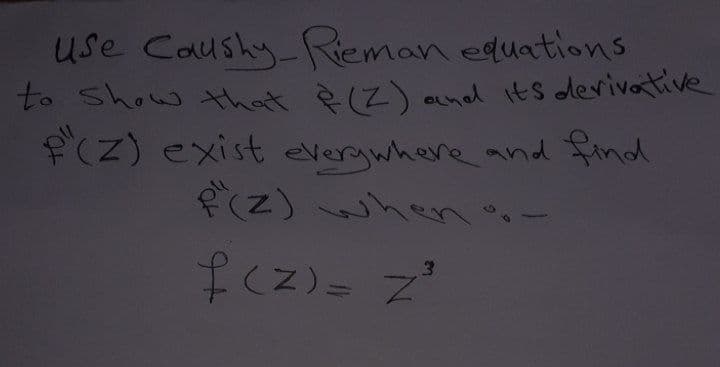 use Caushy-Rieman equations
to show that f'(Z) and its derivative
f"(Z) exist everywhere and find
f"(Z) when :-
f(Z) = Z³